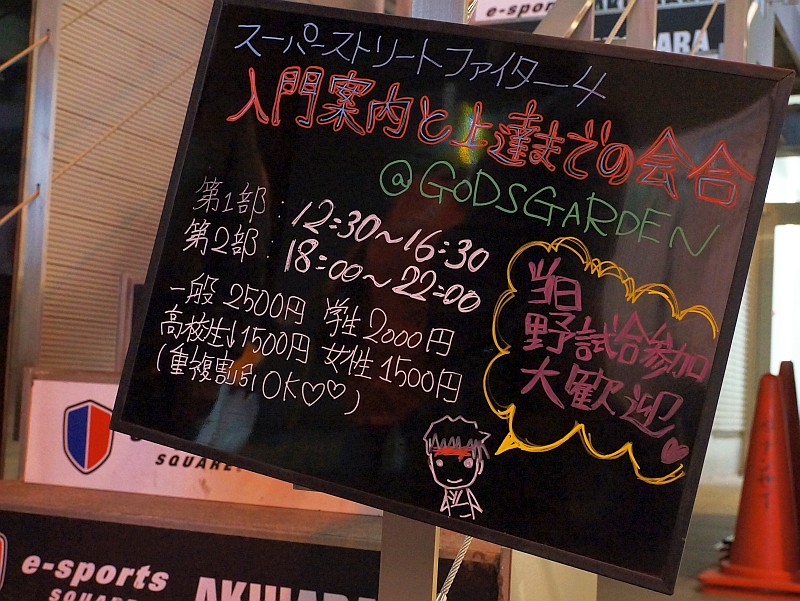 e-sports
スーパーストリートファイター4
入門案内と上達までの会合
@GODSGARDEN
第1部:12:30～16:30
第2部:18:00～22:00
一般 2500円 学生2000円
高校生↓1500円 女性1500円
(重複割引OK♡♡)
当日
野試合参加
大歓迎♡
SQUARE
e-sports
SQUARE
AKIHARA